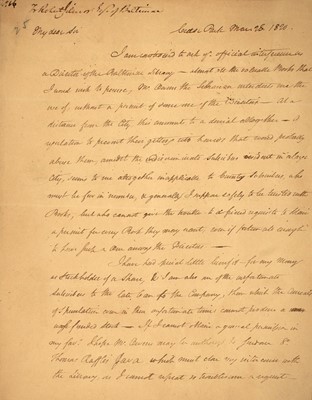 To Robt Gilmor Esq. of Baltimore
Cedar Park Mar 26 1821.
My dear Sir
I am constrained to ask yr official interference as
a Director of the Baltimore Library — almost all the valuable Books that
I want to peruse, Mr. the Librarian interdicts me the
use of, without a permit of some one of the Directors — At a
distance from the City this amounts to a denial altogether — A
regulation to prevent them getting into hands that would probably
abuse them, amidst the indiscriminate Subscribers resident in a large
City, seems to me altogether inapplicable to Country Subscribers, who
must be few in number, & generally I suppose safely to be trusted with
Books, but who cannot give the number & as fixed requisite to obtain
a permit for every Book they may want, even if fortunate enough
to have such a one among the Directors —
I have had indeed little benefit for my money
as Stockholder of a Share, & I am also an unfortunate
subscriber to the late Loan to the Company, than which the annals
of Speculation even in these unfortunate times cannot produce a more
unfunded stock — If I cannot obtain a general permission in
my favr I hope Mr. may be authorized to
Thomas Raffles Java which must close my intercourse with
the Library as I cannot repeat so troublesome a request —